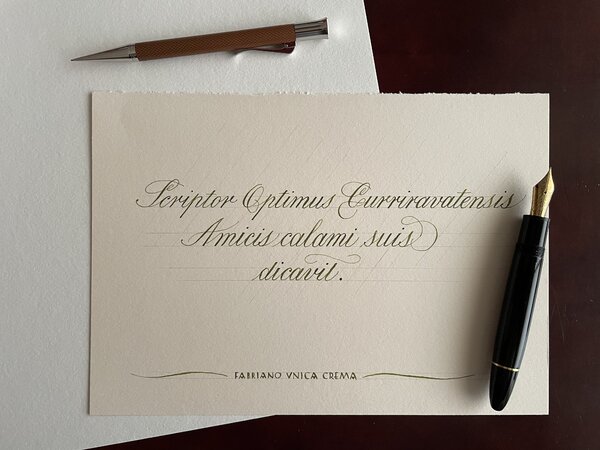 Scriptor Optimus Curriravatensis
Amicis calami suis
dicavit.
FABRIANO VNICA CREMA